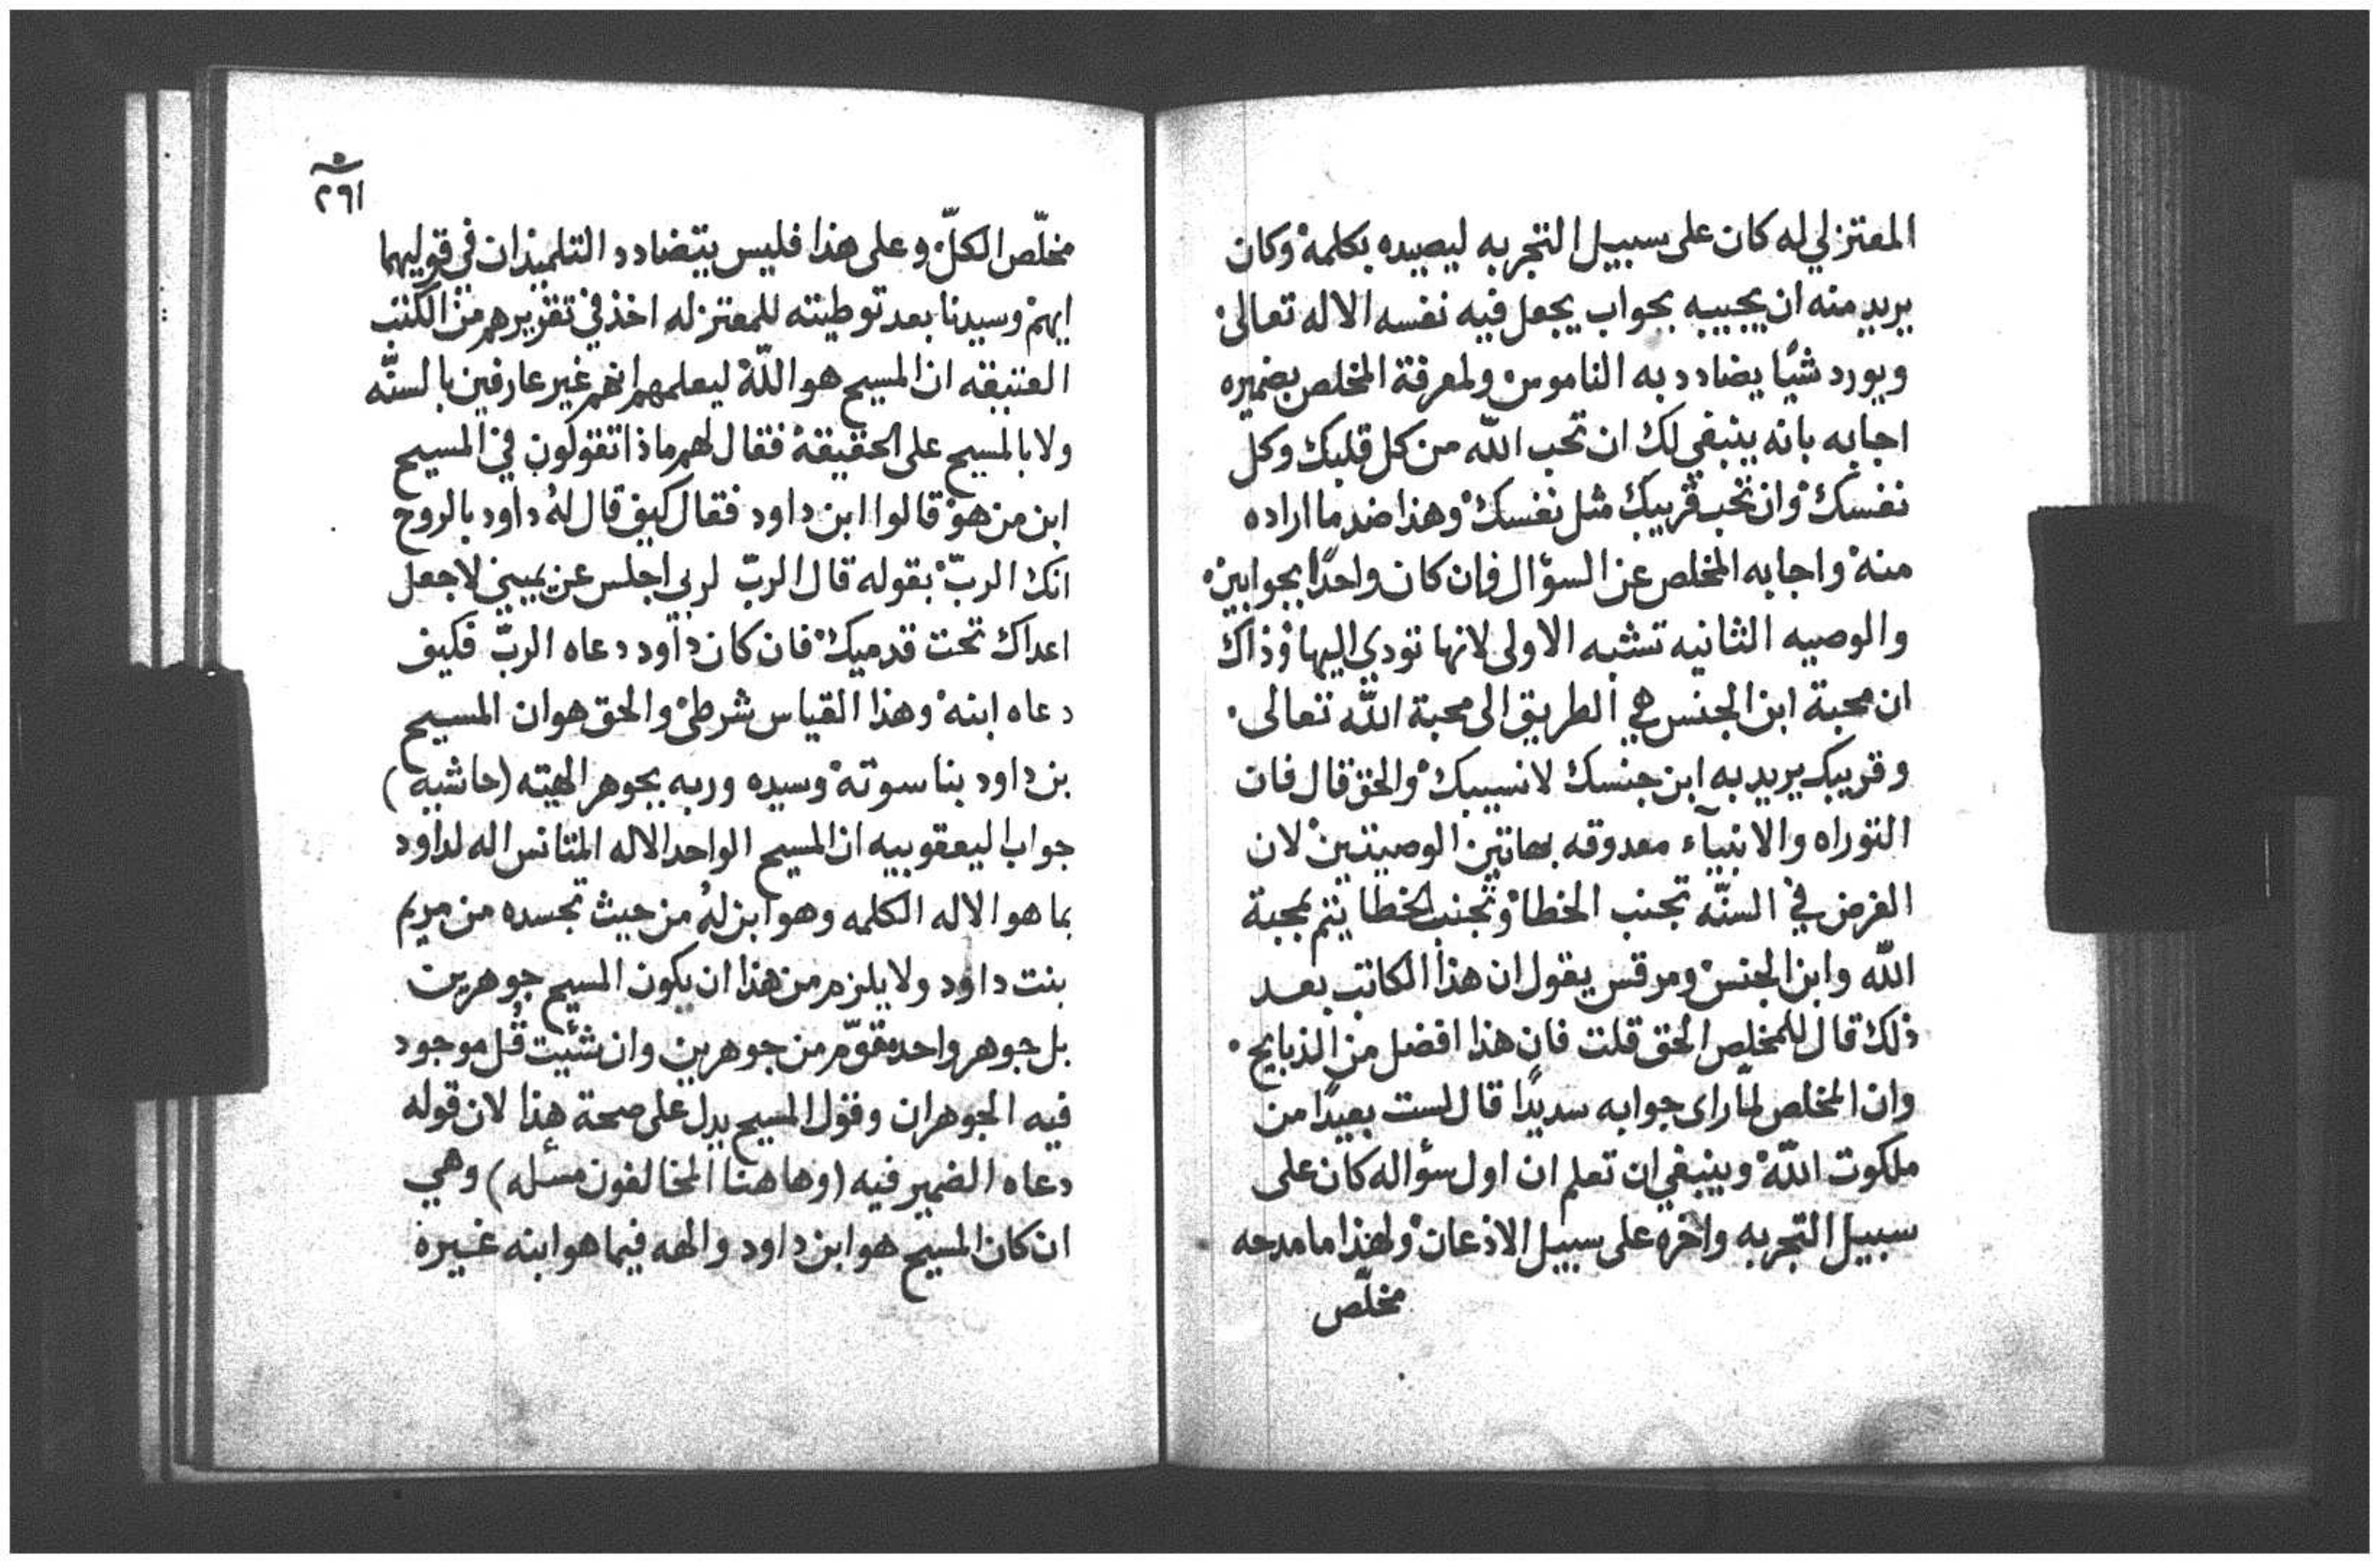 المعتزلي له كان على سبيل التجربه ليصيده بكلمة وكان
يريد منه ان يجيبه بجواب يجعل فيه نفسه الاله تعالى
ويورد شيًا يضادد به الناموس ولمعرفة المخلص بضميره
اجابه بانه ينبغي لك ان تحب الله من كل قلبك وكل
نفسك وان تحب قريبك مثل نفسك وهذا ضد ما اراده
منه واجابه المخلص عن السؤال فان كان واحدًا بجوابين
والوصيه الثانيه تشبه الاولى لانها تودي اليها وذاك
ان محبة ابن الجنس هي الطريق الى محبة الله تعالى
وقريبك يريد به ابن جنسك لا نسيبك والحق قال فان
التوراه والانبيآء معدوقه بهاتين الوصيتين لان
الغرض في السنّه تجنب الخطا وتجنب الخطا يتم بمحبة
الله وابن الجنس ومرقس يقول ان هذا الكاتب بعد
ذلك قال للمخلص الحق قلت فان هذا افضل من الذبايح
وان المخلص لمّا راى جوابه سديدًا قال لست بعيدًا من
ملكوت اللّه وينبغي ان تعلم ان اول سؤاله كان على
سبيل التجربه واخره على سبيل الاذعان ولهذا ما مدحه
مخلّص
٢٦١
مخلّص الكلّ وعلى هذا فليس يتضادد التلميذان في قوليهما
ايهم وسيدنا بعد توطيته للمعتزله اخذ في تقريرهم من الكتب
العتيقه ان المسيح هو اللّه ليعلمهم انهم غير عارفين بالسنّه
ولا بالمسيح على الحقيقة فقال لهم ماذا تقولون في المسيح
ابن من هو قالوا ابن داود فقال كيف قال لهُ داود بالروح
انك الربّ بقوله قال الربّ لربي اجلس عن يميني لاجعل
اعداك تحت قدميك فان كان داود دعاه الربّ فكيف
دعاه ابنه وهذا القياس شرطي والحق هو ان المسيح
بن داود بناسوته وسيده وربه بجوهر الهيته (حاشيه)
جواب اليعقوبيه ان المسيح الواحد الاله المتانس اله لداود
بما هو الاله الكلمه وهو ابن لهُ من حيث تجسده من مريم
بنت داود ولا يلزم من هذا ان يكون المسيح جوهرين
بل جوهر واحد مقوّم من جوهرين وان شئيت قُل موجود
فيه الجوهران وقول المسيح يدل على صحة هذا لان قوله
دعاه الضمير فيه (وهاهنا المخالفون مسله) وهي
ان كان المسيح هو ابن داود والهه فيما هو ابنه غيره